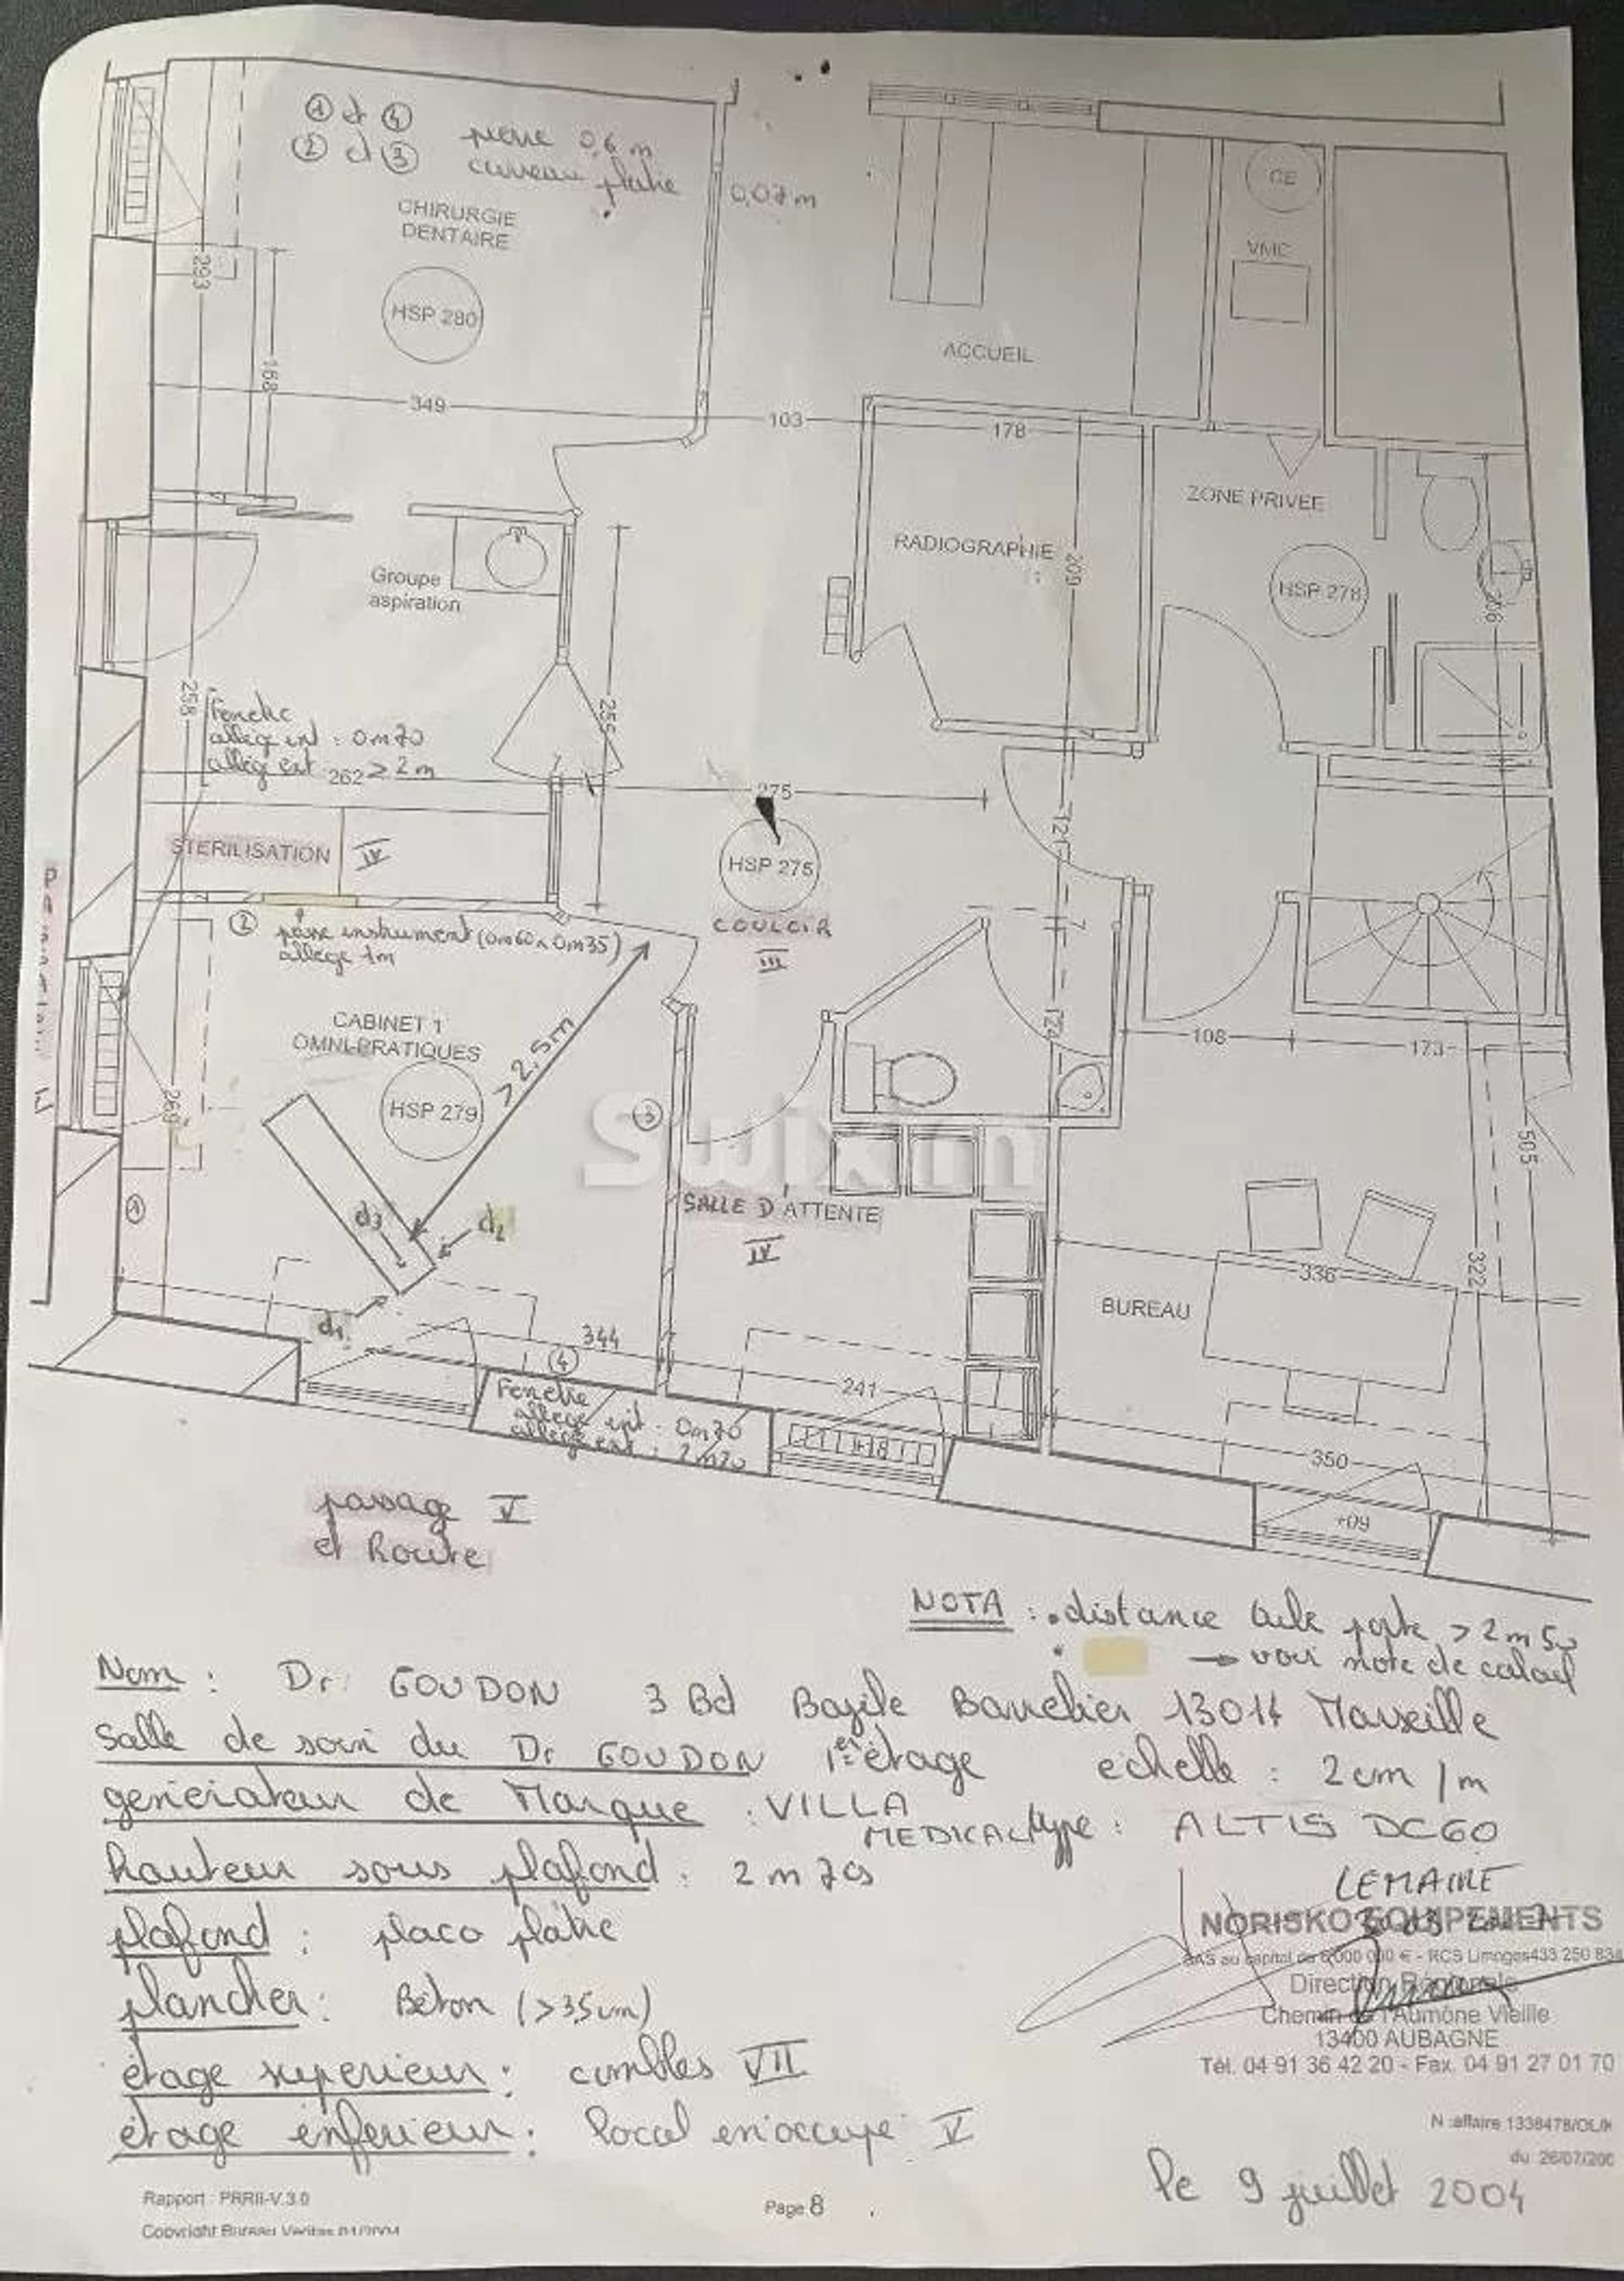 ① et ④ pierre 0,6 m
② et ③ carreau plâtre 0,07m
CHIRURGIE
DENTAIRE
HSP 280
293
168
349
103
178
ACCUEIL
CE
VMC
RADIOGRAPHIE
209
ZONE PRIVEE
HSP 278
Groupe
aspiration
258
255
Fenetre
allege int : 0m70
allege ext ≥ 2m
262
275
STERILISATION IV
HSP 275
COULOIR
III
121
7
② passe instrument (0m60x0m35)
allege 1m
CABINET 1
OMNI-PRATIQUES
HSP 279
> 2,5m
③
①
124
108
173
505
Swixim
SALLE D'ATTENTE
IV
d3
d2
d1
344
④
241
BUREAU
336
322
350
Fenetre
allege int : 0m70
allege ext : 2m70
passage V
et Route
NOTA : • distance tube porte > 2m50
• → voir note de calcul
Nom : Dr GOUDON 3 Bd Bazile Barrelier 13014 Marseille
Salle de soin du Dr GOUDON 1er étage echelle : 2cm / m
generateur de Marque : VILLA
MEDICAL type : ALTIS DC60
hauteur sous plafond :
plafond : placo plâtre
LEMAIRE
NORISKO EQUIPEMENTS
SAS au capital de 6 000 000 € - RCS Limoges 433 250 834
plancher : Béton (>35cm)
Direction Régionale
Chemin de l'Aumône Vieille
13400 AUBAGNE
Tél. 04 91 36 42 20 - Fax. 04 91 27 01 70
étage superieur : combles VII
étage inferieur : local inoccupé V
N :affaire 1338478/OL/
du 26/07/200
le 9 juillet 2004
Rapport : PRRII-V.3.0
Page 8
Copyright Bureau Veritas